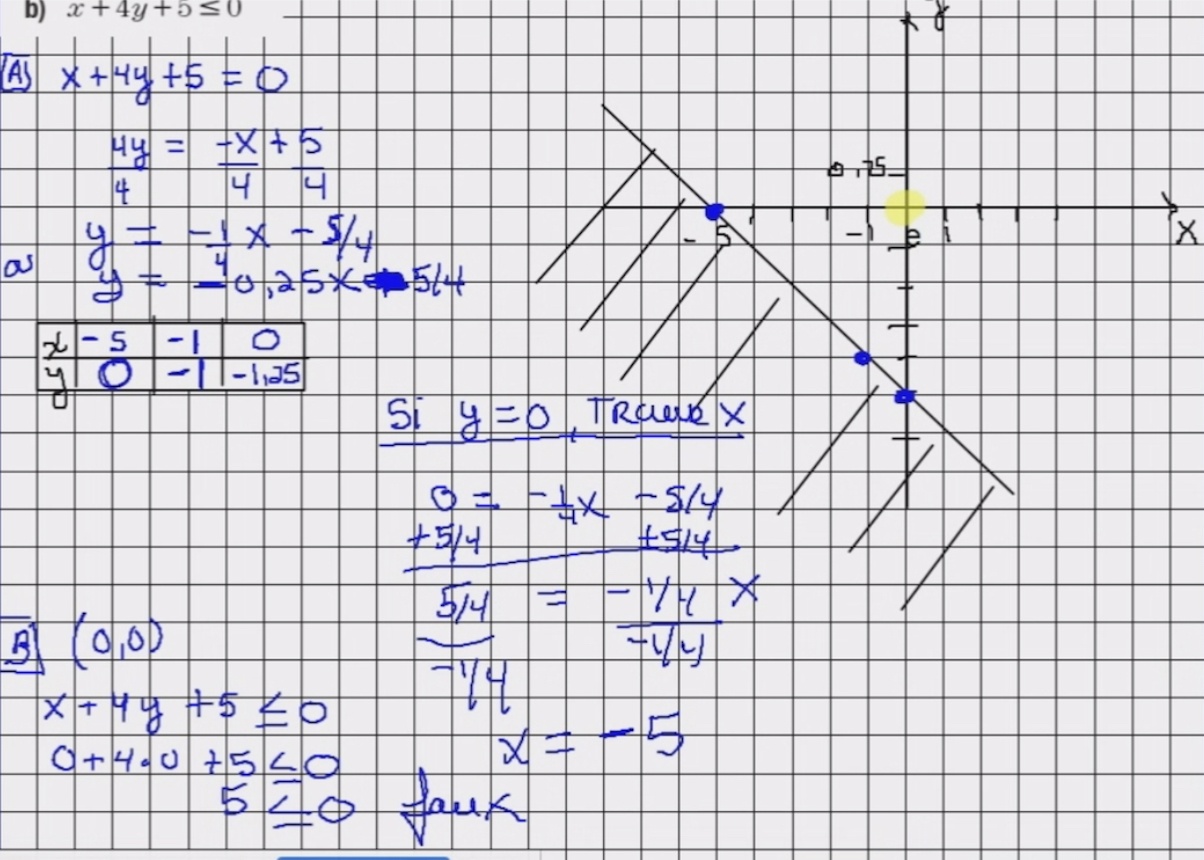 b) x + 4y + 5 ≤ 0
A) x + 4y + 5 = 0
4y/4 = -x/4 + 5/4
y = -1/4 x - 5/4
ou y = -0,25x - 5/4
x | -5 | -1 | 0
y | 0 | -1 | -1,25
Si y = 0, TROUVER X
0 = -1/4 x - 5/4
+5/4 +5/4
5/4 = -1/4 X
-1/4 -1/4
x = -5
B) (0,0)
x + 4y + 5 ≤ 0
0 + 4•0 + 5 ≤ 0
5 ≤ 0 faux
y
0,75
-5 -1 1
X